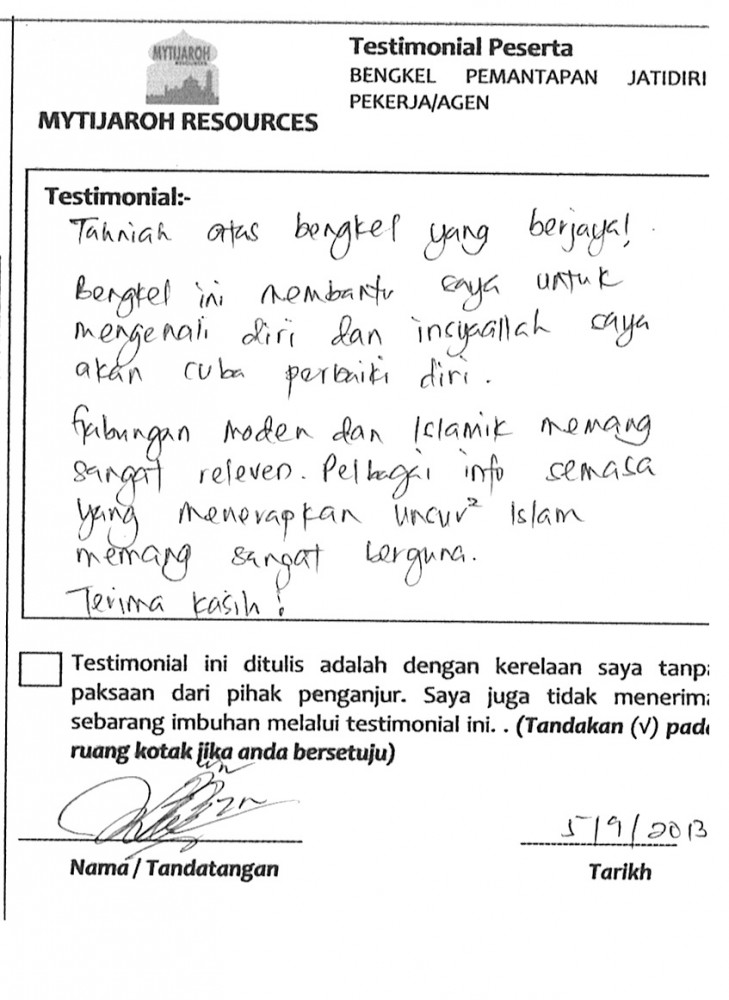 MYTIJAROH
RESOURCES
MYTIJAROH RESOURCES
Testimonial Peserta
BENGKEL PEMANTAPAN JATIDIRI
PEKERJA/AGEN
Testimonial:-
Tahniah atas bengkel yang berjaya!
Bengkel ini membantu saya untuk
mengenali diri dan insyaallah saya
akan cuba perbaiki diri.
Gabungan moden dan Islamik memang
sangat releven. Pelbagai info semasa
yang menerapkan unsur² Islam
memang sangat berguna.
Terima kasih!
Testimonial ini ditulis adalah dengan kerelaan saya tanpa
paksaan dari pihak penganjur. Saya juga tidak menerima
sebarang imbuhan melalui testimonial ini. . (Tandakan (√) pada
ruang kotak jika anda bersetuju)
5/9/2013
Nama / Tandatangan
Tarikh